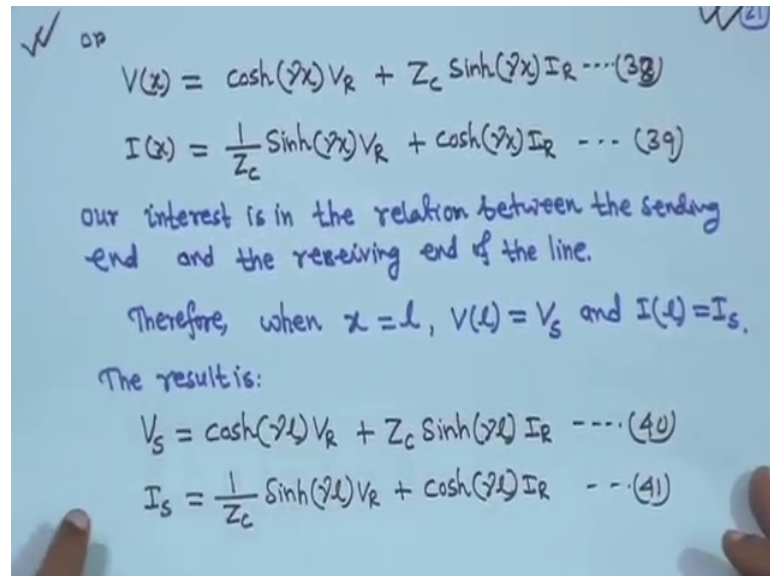 21
or
V(x) = cosh(γx) V_R + Z_c Sinh(γx) I_R ----(38)
I(x) = 1/Z_c Sinh(γx) V_R + cosh(γx) I_R --- (39)
our interest is in the relation between the sending
end and the receiving end of the line.
Therefore, when x = l, V(l) = V_S and I(l) = I_S.
The result is:
V_S = cosh(γl) V_R + Z_c Sinh(γl) I_R ----(40)
I_S = 1/Z_c Sinh(γl) V_R + cosh(γl) I_R --- (41)